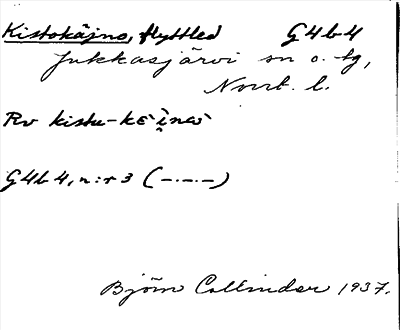 Kistokäjno, flyttled G4b4
Jukkasjärvi sn o. tg,
Norrt. l.
Rv kistu-
G4b4, n:r 3 (—.—.—)
Björn Collinder 1937.